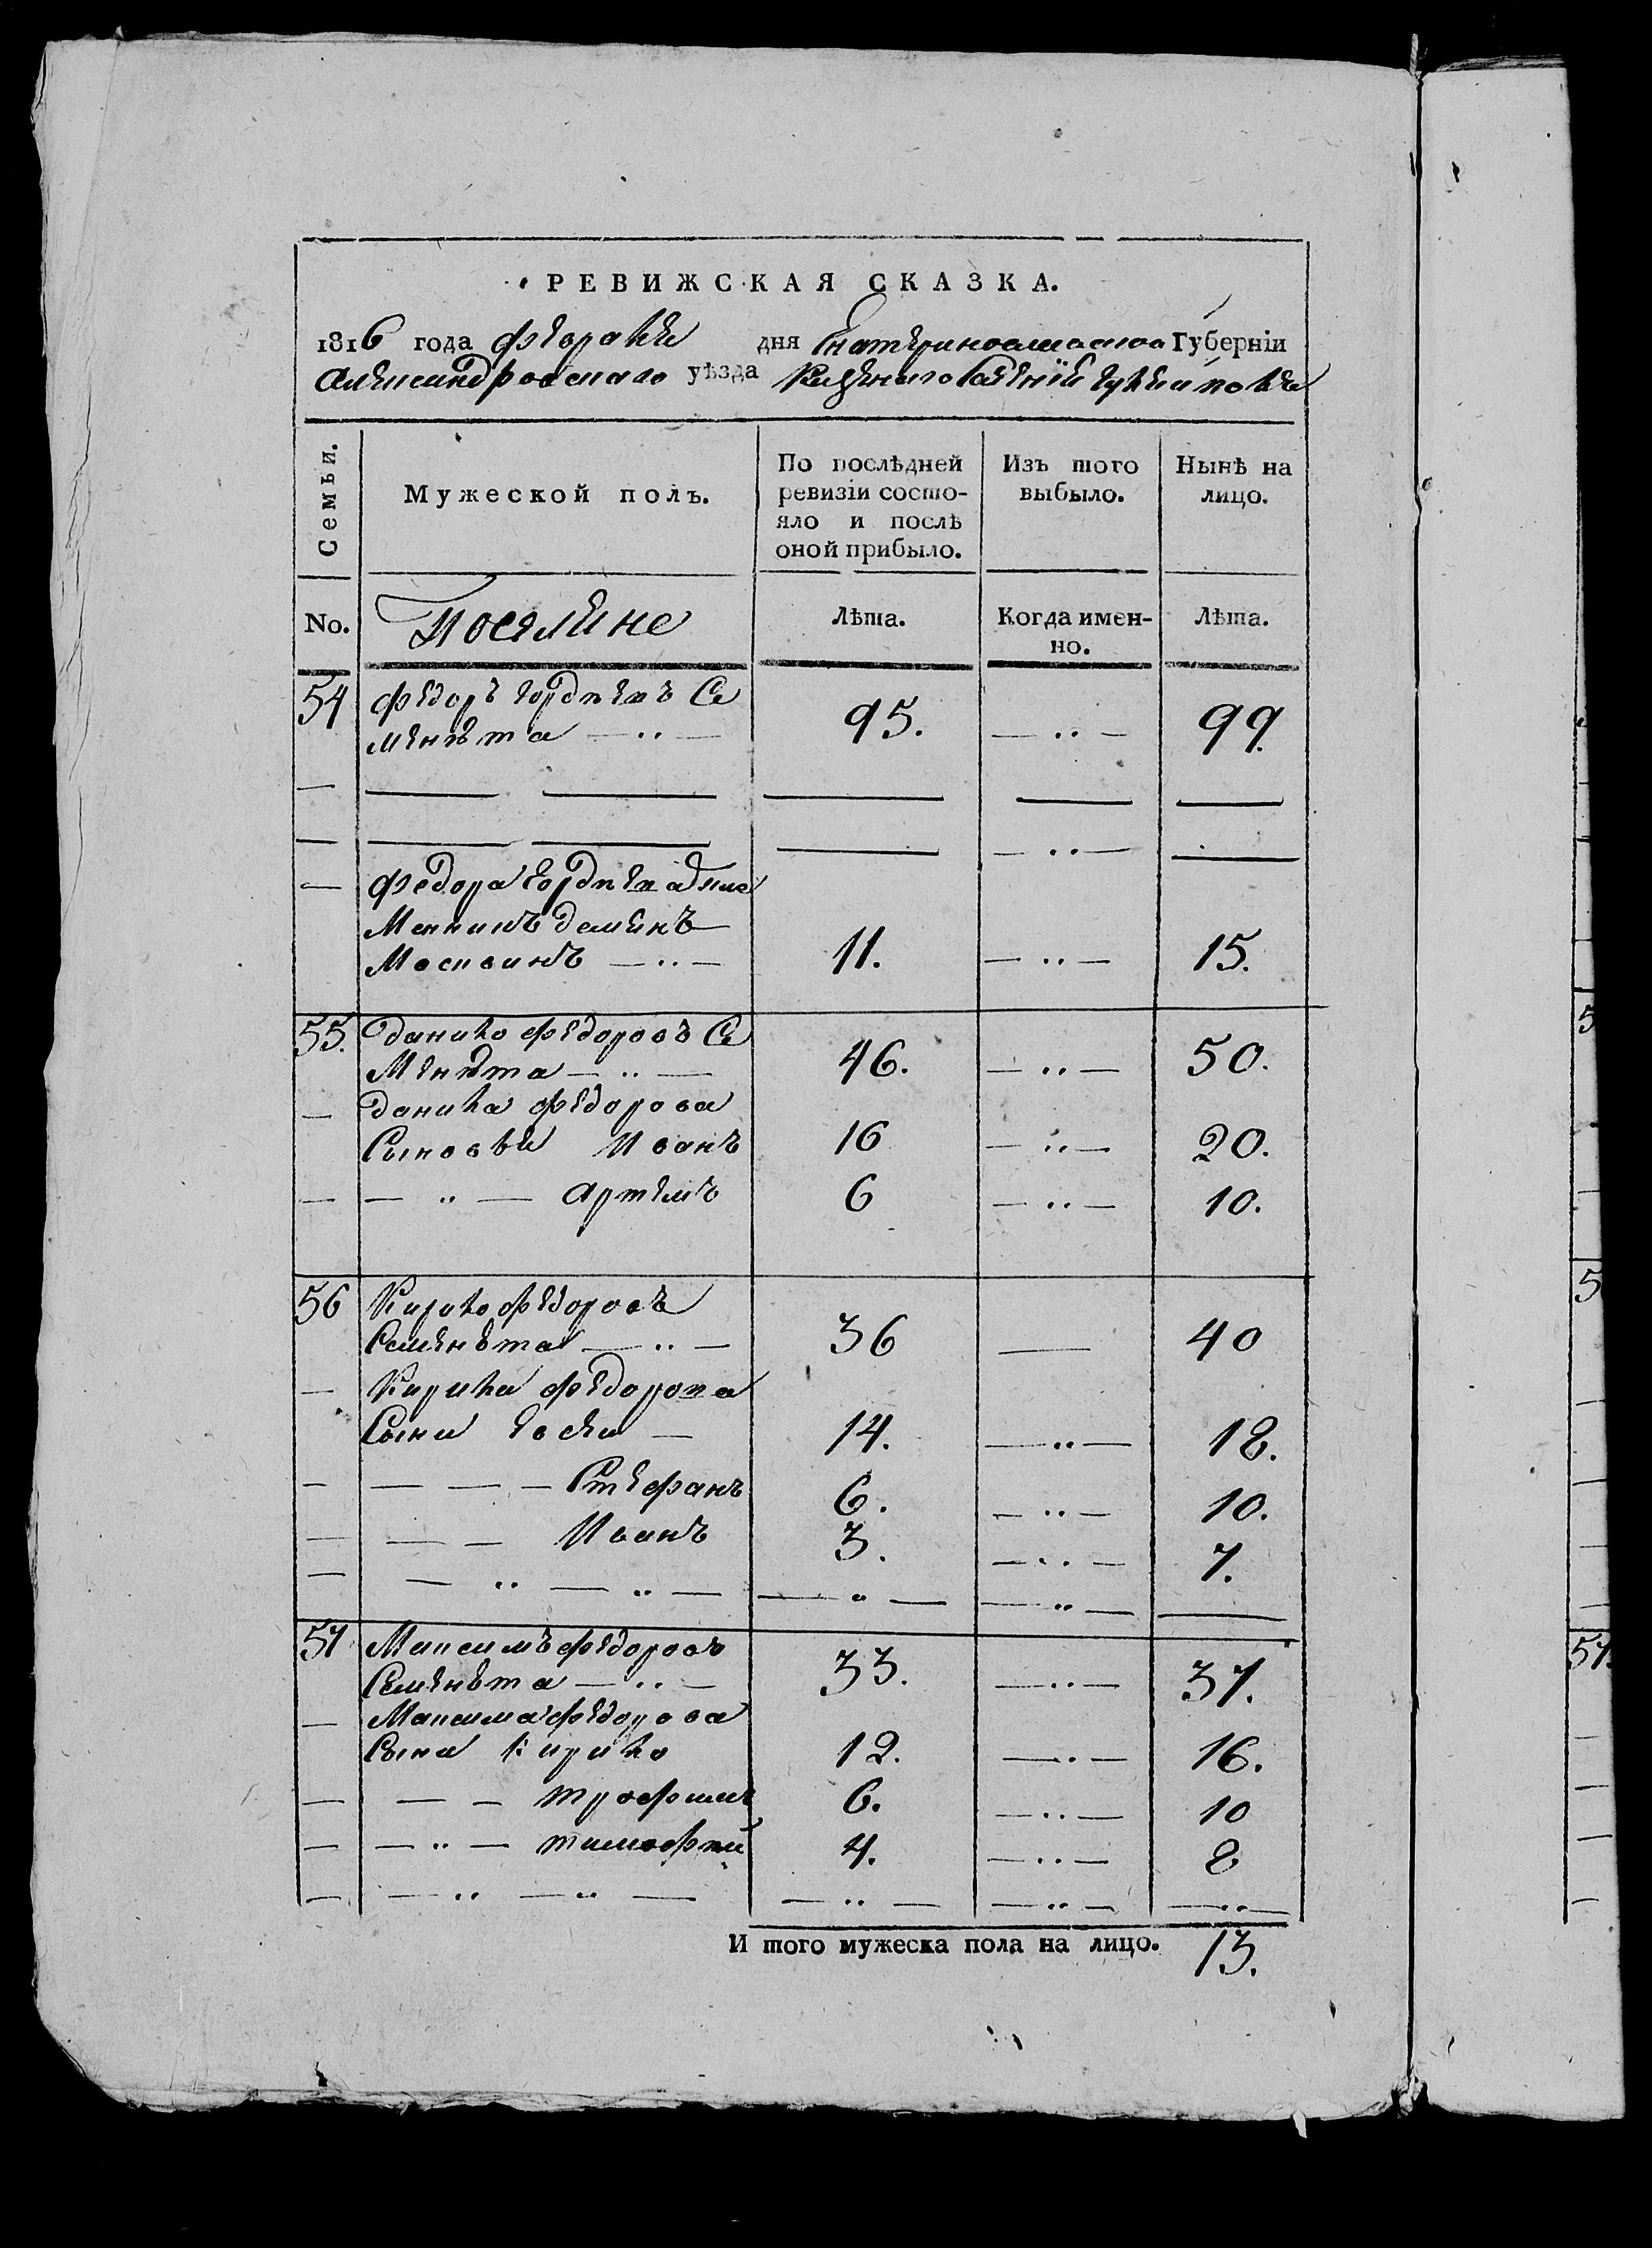 РЕВИЖСКАЯ СКАЗКА.
1816 года февраля дня Екатеринославской Губернiи
Александровскаго уѣзда Казеннаго селенiя Гуляйполя
Семьи.
Мужеской полъ.
По послѣдней
ревизiи состо-
яло и послѣ
оной прибыло.
Изъ того
выбыло.
Нынѣ на
лицо.
No.
Поселяне
Лѣта.
Когда имен-
но.
Лѣта.
54 Федоръ Гордѣевъ Се
менѣта — .. — 95. — .. — 99.
— Федора Гордѣева
Москвинъ — .. — 11. — .. — 15.
55. Данило Федоровъ Се
Менѣта — .. — 46. — .. — 50.
— Данила Федорова
Сыновья Иванъ 16 — .. — 20.
— — .. — Артемъ 6 — .. — 10.
56 Кирило Федоровъ
Семенѣта — .. — 36 — 40
— Кирила Федорова
Сыны Евсей — 14. — .. — 18.
— — — — Стефанъ 6. — .. — 10.
— — — Иванъ 3. — .. — 7.
— — .. — .. — — .. — — .. — —
57 Максимъ Федоровъ
Семенѣта — .. — 33. — .. — 37.
— Максима Федорова
Сыны Кирило 12. — .. — 16.
— — — Трофимъ 6. — .. — 10
— — .. — Тимофѣй 4. — .. — 8
— — .. — .. — — .. — — .. — — .. —
И того мужеска пола на лицо. 13.
5
5
57.